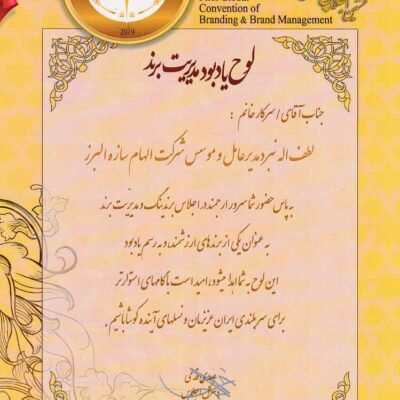 Convention of
Branding & Brand Management
2019
لوح یادبود مدیریت برند
جناب آقای / سرکار خانم :
لطف اله نبرد مدیر عامل و موسس شرکت الهام سازه البرز
به پاس حضور شما سرور ارجمند در اجلاس برندینگ و مدیریت برند
به عنوان یکی از برندهای ارزشمند و به رسم یادبود
این لوح به شما اهدا میشود، امید است با گامهای استوارتر
برای سربلندی ایران عزیزمان و نسلهای آینده کوشا باشیم .